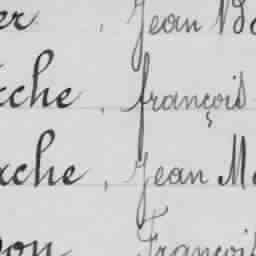 er, Jean Bo
che, françois
che, Jean Ma
on François